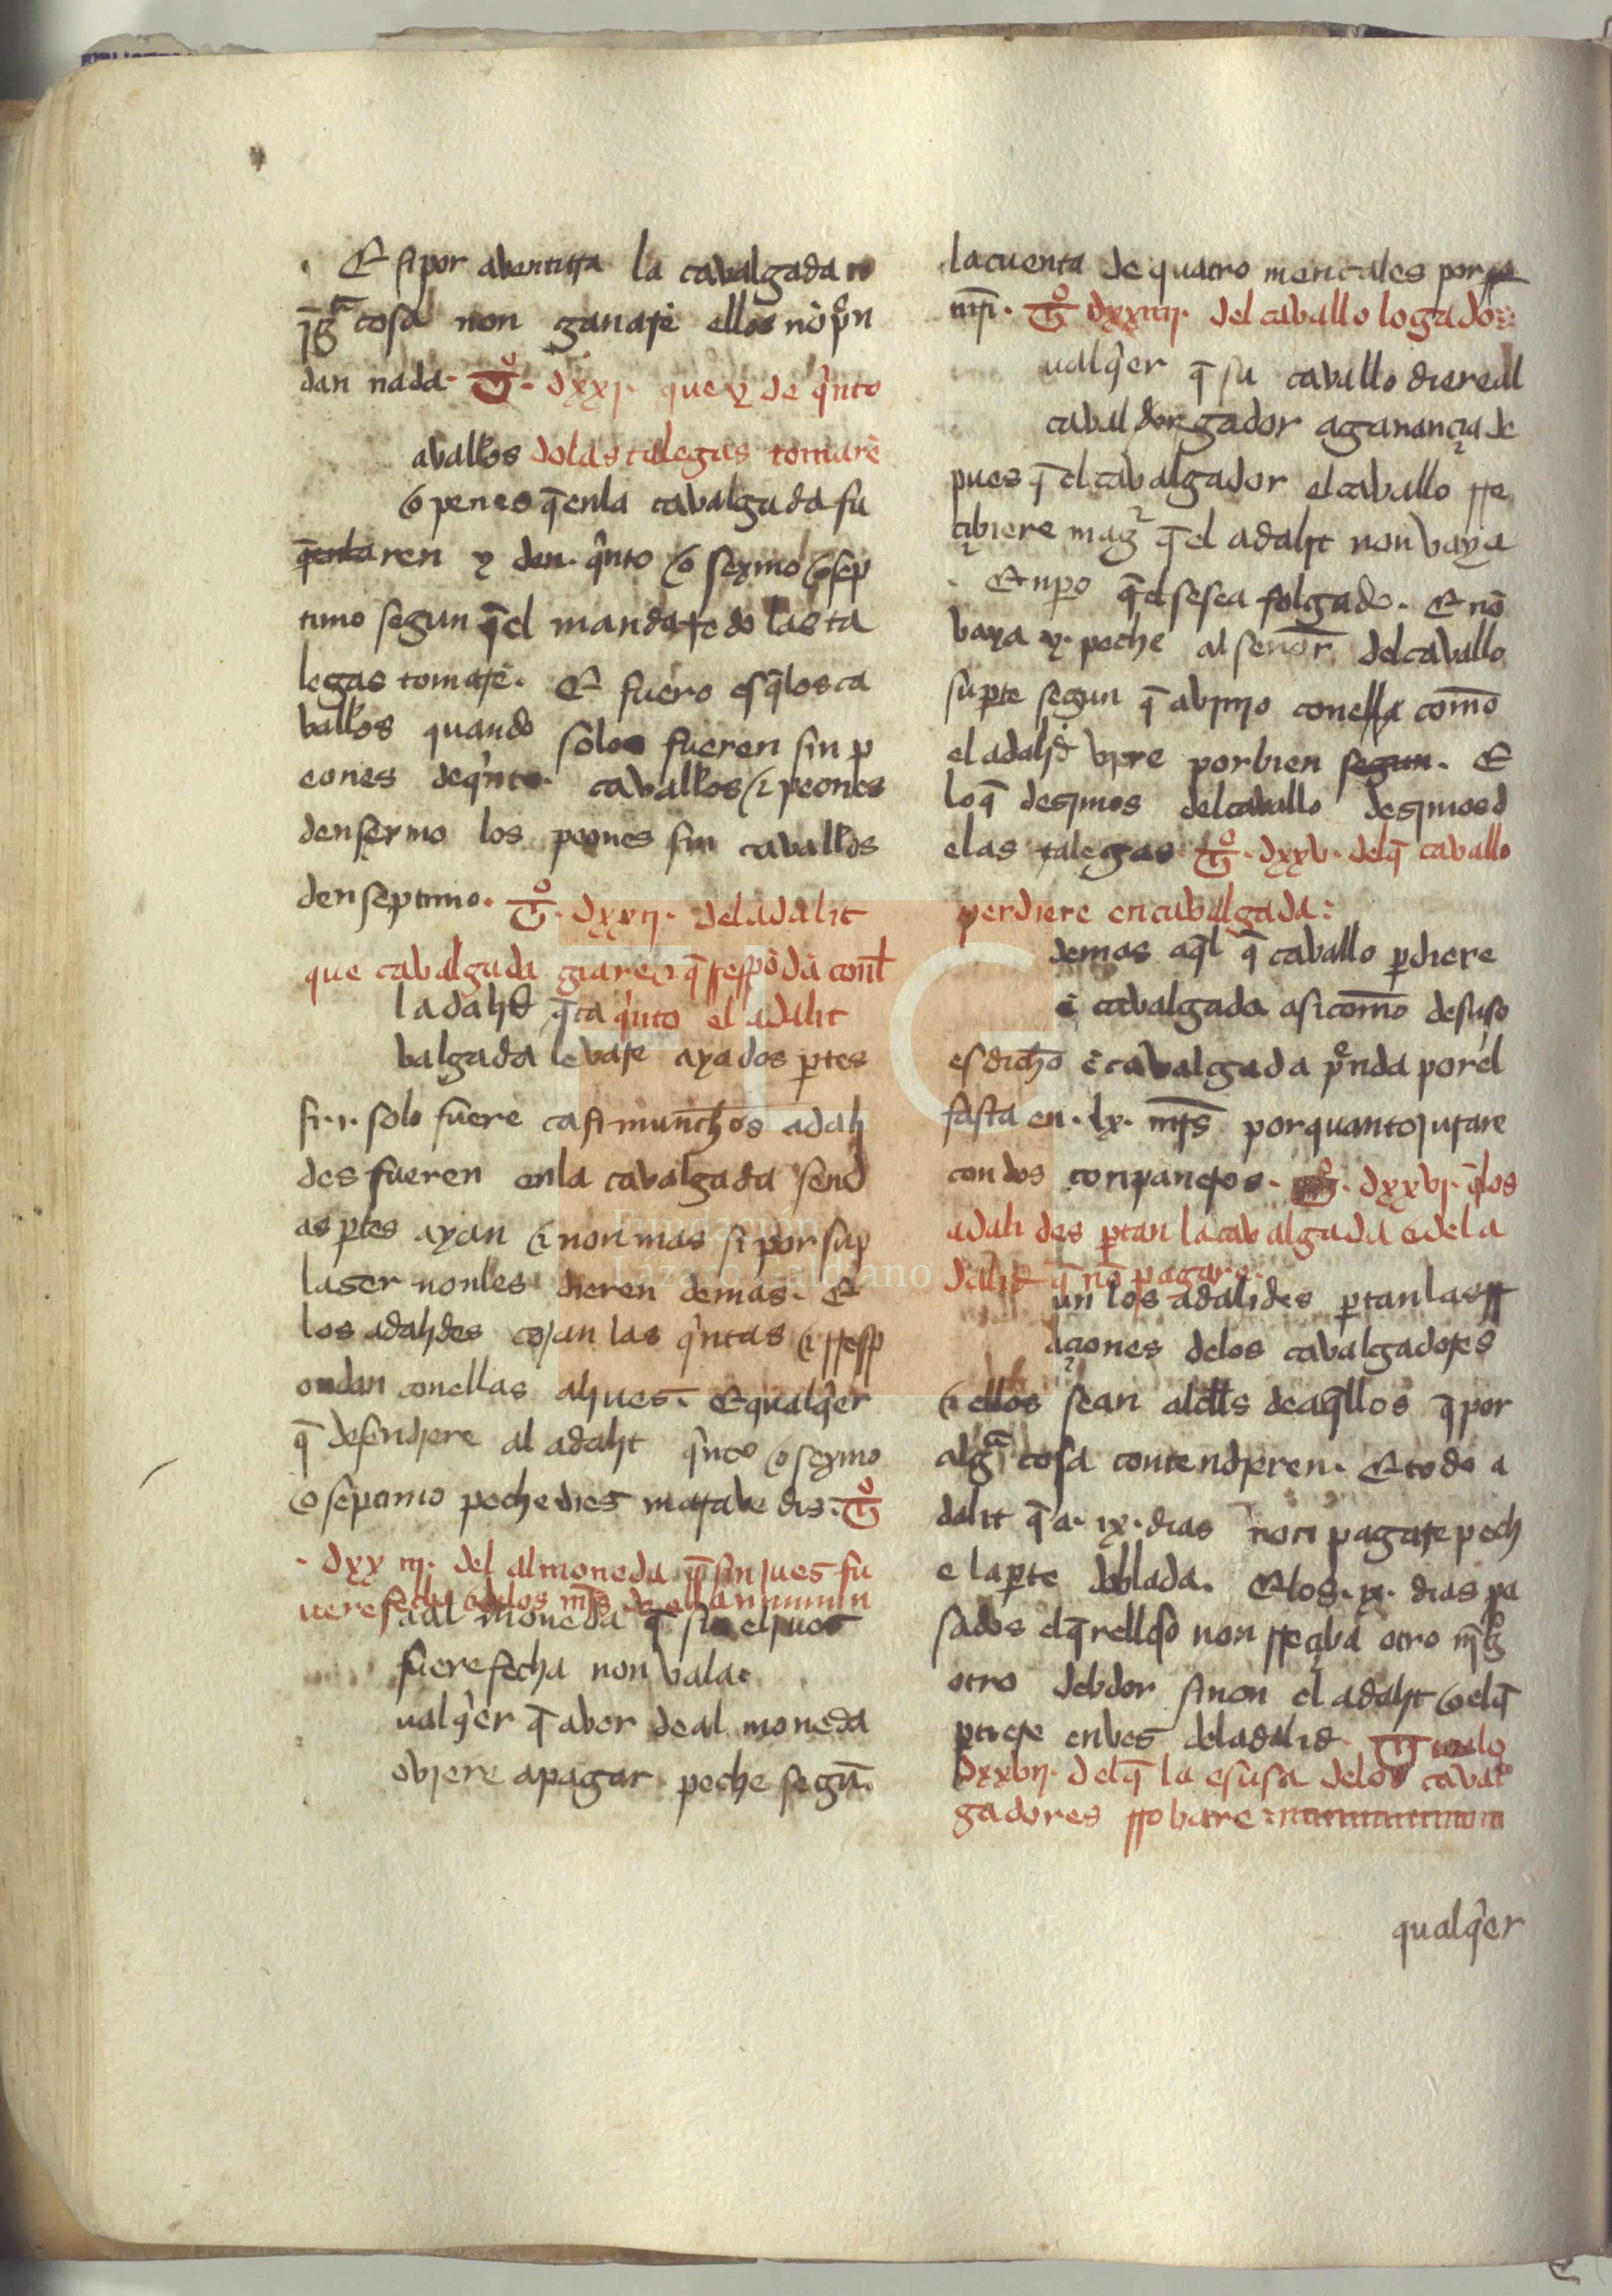 Et si por abentura la cavalgada nī
g̃ᵃ cosa non ganarē ellos nō p̃n
dan nada. tº. dxxj. que y de q̃nto
avallos dolas talegas tomarē
o penes q̃ en la cavalgada fu
q̃enla ren y den. q̃nto o seymo o sep
timo segun q̃ el mandare do las ta
legas tomarē. Et fuero es q̃ los ca
ballos quando solos fueren sin p
eones de q̃nto. cavallos & peones
den sexmo los peones sin cavallos
den septimo. tº. dxxij. del adalit
que cavalgada giare & q̃ rrespōda con l
l adalid q̃ ca q̃nto el adalit
balgada levare aya dos ptes
si .i. solo fuere ca si munchos adali
des fueren en la cavalgada send
as ptes ayan & non mas si por su p
laser non les dieren demas. Et
los adalides cojan las q̃ntas & rresp
ondan con ellas al jues. Et qualq̃er
q̃ defendiere al adalit q̃nto o seymo
o septimo peche dies maravedis. tº
. dxxiij. del almoneda q̃ sin jues fu
uere fecha & de los mr̃s de ella
a almoneda q̃ sin el jues
fuere fecha non vala.
ualq̃er q̃ aver de al moneda
oviere a pagar peche segũ
la cuenta de quatro mencales por
mr̃i. tº dxxiiij. del caballo logado
ualq̃er q̃ su cavallo diere al
cabal dor gador a ganançia de
pues q̃ el cavalgador el caballo rre
çibiere mag̃ q̃ el adalit non vaya
. Et np̃o q̃ el se sea folgado. Et nō
vaya y. peche al señor del caballo
su pte segun q̃ abinjo con ella com̃o
el adalid vjere por bien segun. E
lo q̃ desjmos del caballo desjmos d
e las talegas tº. dxxv. del q̃ caballo
perdiere en cabalgada:
demas aq̃l q̃ caballo pdiere
ē cavalgada asi com̃o desuso
es dicho ē cavalgada p̃nda por el
fasta en .lx. mr̃s por quanto jurare
con dos conpaneros. dxxvj. q̃ los
adali des ptan la cavalgada & del a
dalid q̃ nō pagare.
un los adalides ptan las rr
açiones delos cavalgadores
& ellos sean alclls de aq̃llos q̃ por
algᵃ cosa contendjeren. Et todo a
dalit q̃ a .ix. dias non pagare pech
e la pte doblada. Et los .ix. dias pa
sados el q̃relloso non rreçiba otro
otro debdor sinon el adalit o el q̃
ptiere en ves del adalid
dxxvij. del q̃ la esusa delos caval
gadores rrobare
qualq̃er